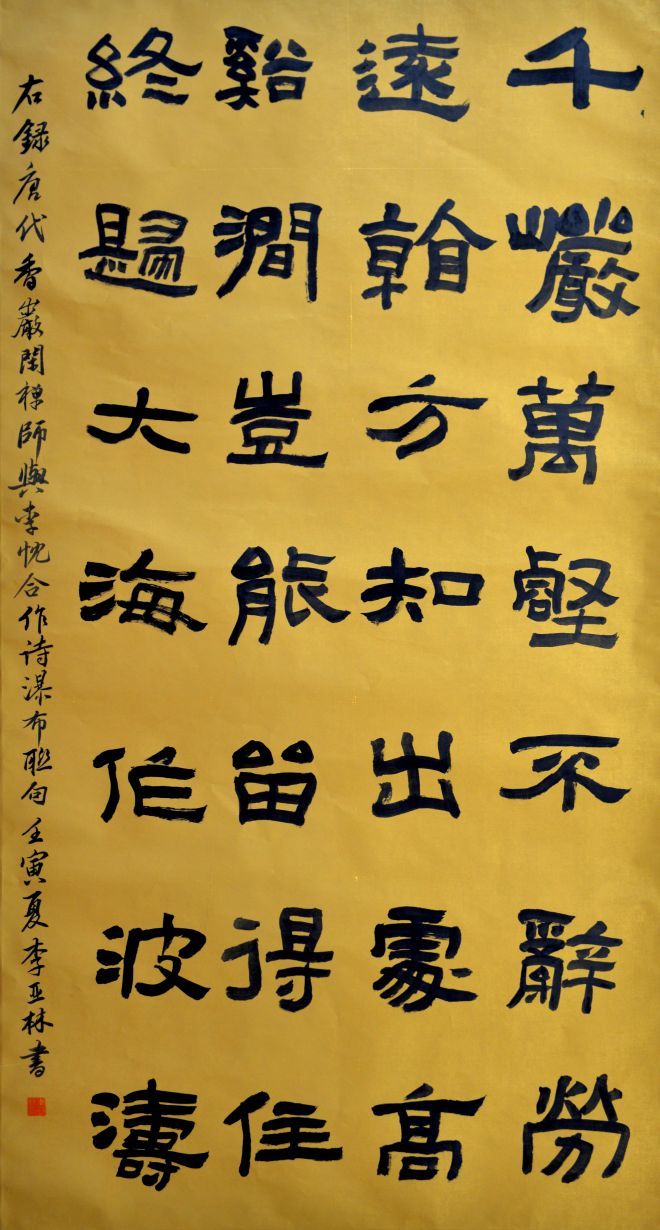 千巖萬壑不辭勞
遠看方知出處高
谿澗豈能留得住
終歸大海作波濤
右録唐代香巖閑禅師與李忱合作诗瀑布联句壬寅夏李亚林書